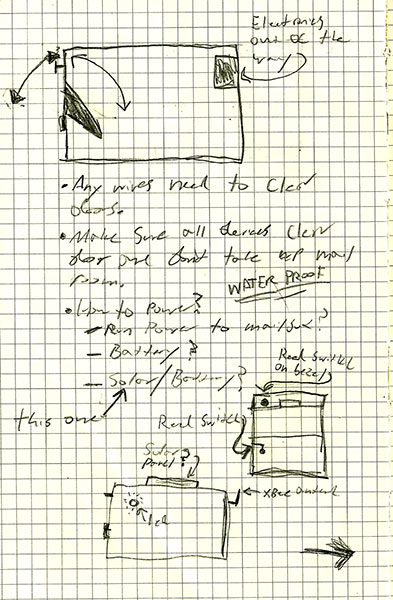 Electronics
out of the
way
• Any wires need to Clear
doors.
• Make Sure all devices Clear
door and dont take up mail
room.
WATER PROOF
• How to Power?
- Run Power to mailbox?
- Battery?
- Solar/Battery?
this one
Reed Switch
on bezel
Reed Switch
Solar
Panel?
XBee antenna